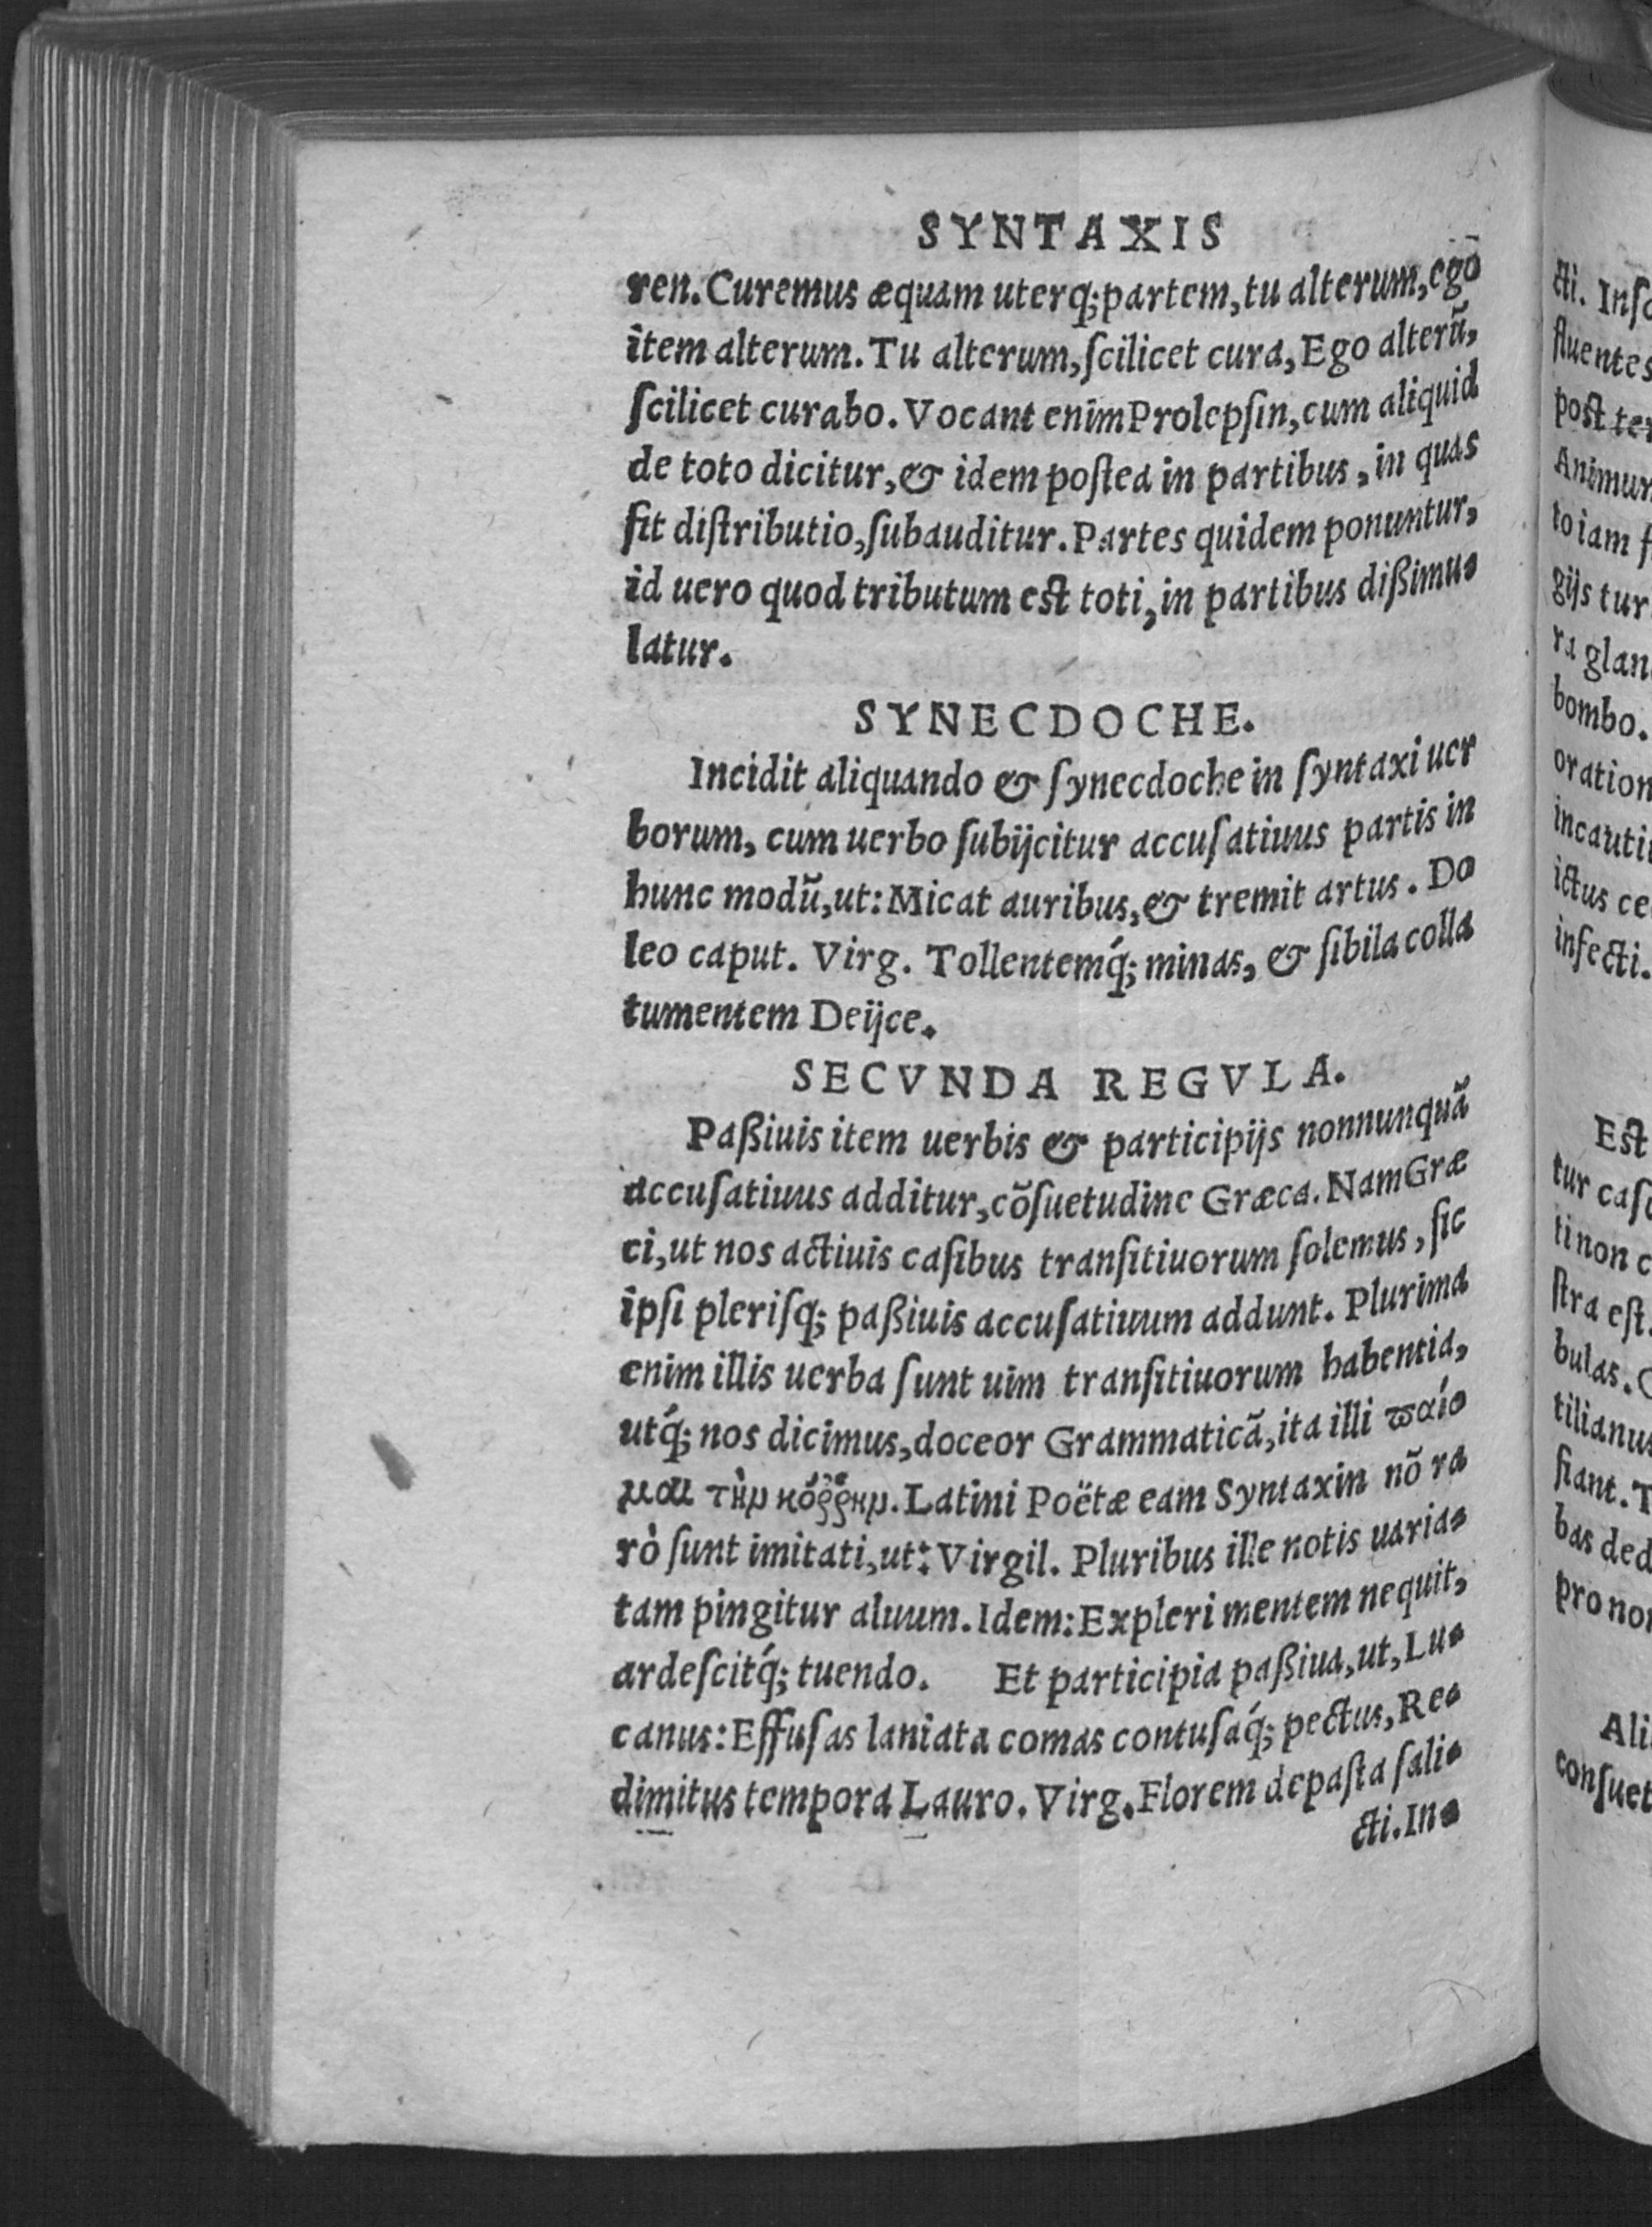 SYNTAXIS
ren. Curemus æquam uterq; partem, tu alterum, ego
item alterum. Tu alterum, ſcilicet cura, Ego alterũ,
ſcilicet curabo. Vocant enim Prolepſin, cum aliquid
de toto dicitur, & idem poſtea in partibus, in quas
fit diſtributio, ſubauditur. Partes quidem ponuntur,
id uero quod tributum eſt toti, in partibus dißimu⸗
latur.
SYNECDOCHE.
Incidit aliquando & ſynecdoche in ſyntaxi uer
borum, cum uerbo ſubijcitur accuſatiuus partis in
hunc modũ, ut: Micat auribus, & tremit artus. Do
leo caput. Virg. Tollentemq́; minas, & ſibila colla
tumentem Deijce.
SECVNDA REGVLA.
Paßiuis item uerbis & participijs nonnunquã
accuſatiuus additur, cõſuetudine Græca. Nam Græ
ci, ut nos actiuis caſibus tranſitiuorum ſolemus, ſic
ipſi pleriſq; paßiuis accuſatiuum addunt. Plurima
enim illis uerba ſunt uim tranſitiuorum habentia,
utq́; nos dicimus, doceor Grammaticã, ita illi ϖαίο
μαι τὴν κόῤῥην. Latini Poëtæ eam Syntaxin nõ ra
rò ſunt imitati, ut: Virgil. Pluribus ille notis uaria⸗
tam pingitur aluum. Idem: Expleri mentem nequit,
ardeſcitq́; tuendo. Et participia paßiua, ut, Lu⸗
canus: Effuſas laniata comas contuſaq́; pectus, Re⸗
dimitus tempora Lauro. Virg. Florem depaſta ſali⸗
cti. In⸗
cti. Inſ
fluentes
poſt
to iam
gijs tur
ra glan
bombo.
oration
ictus ce
infecti.
Eſt
tur caſ
ti non c
ſtra eſt.
bulas.
tilianus
fiant. T
bas ded
pro non
Ali
conſuet